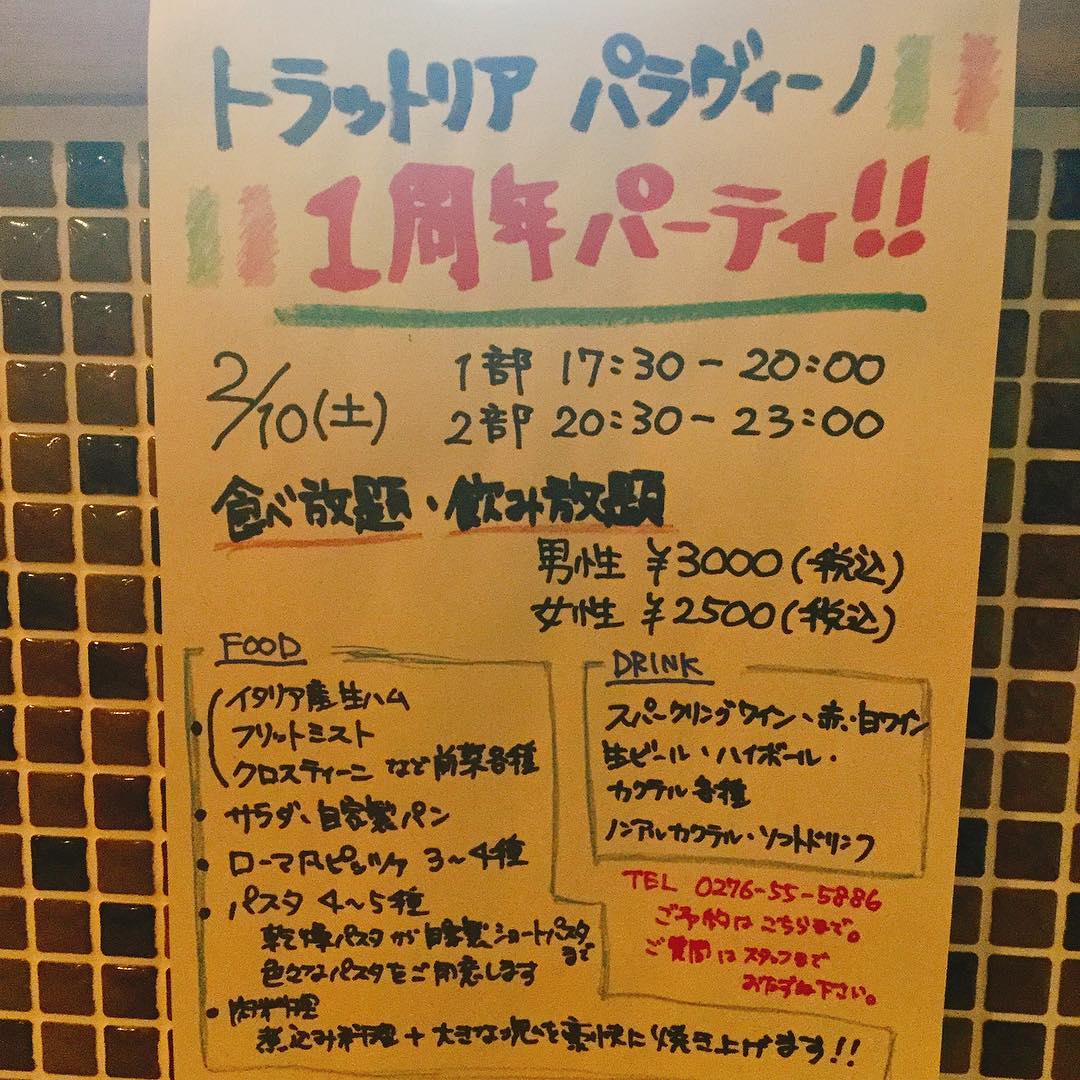 トラットリア パラヴィーノ
1周年パーティ!!
2/10(土)
1部 17:30-20:00
2部 20:30-23:00
食べ放題・飲み放題
男性 ¥3000(税込)
女性 ¥2500(税込)
FOOD
イタリア産生ハム
フリットミスト
クロスティーニ など前菜各種
・サラダ、自家製パン
・ローマ風ピッツァ 3〜4種
・パスタ 4〜5種
乾燥パスタから自家製ショートパスタまで
色々なパスタをご用意します
・肉料理
煮込み料理+大きな塊を豪快に焼き上げます!!
DRINK
スパークリングワイン、赤・白ワイン
生ビール・ハイボール・
カクテル各種
ノンアルカクテル・ソフトドリンク
TEL 0276-55-5886
ご予約はこちらまで。
ご質問はスタッフまで
おたずね下さい。